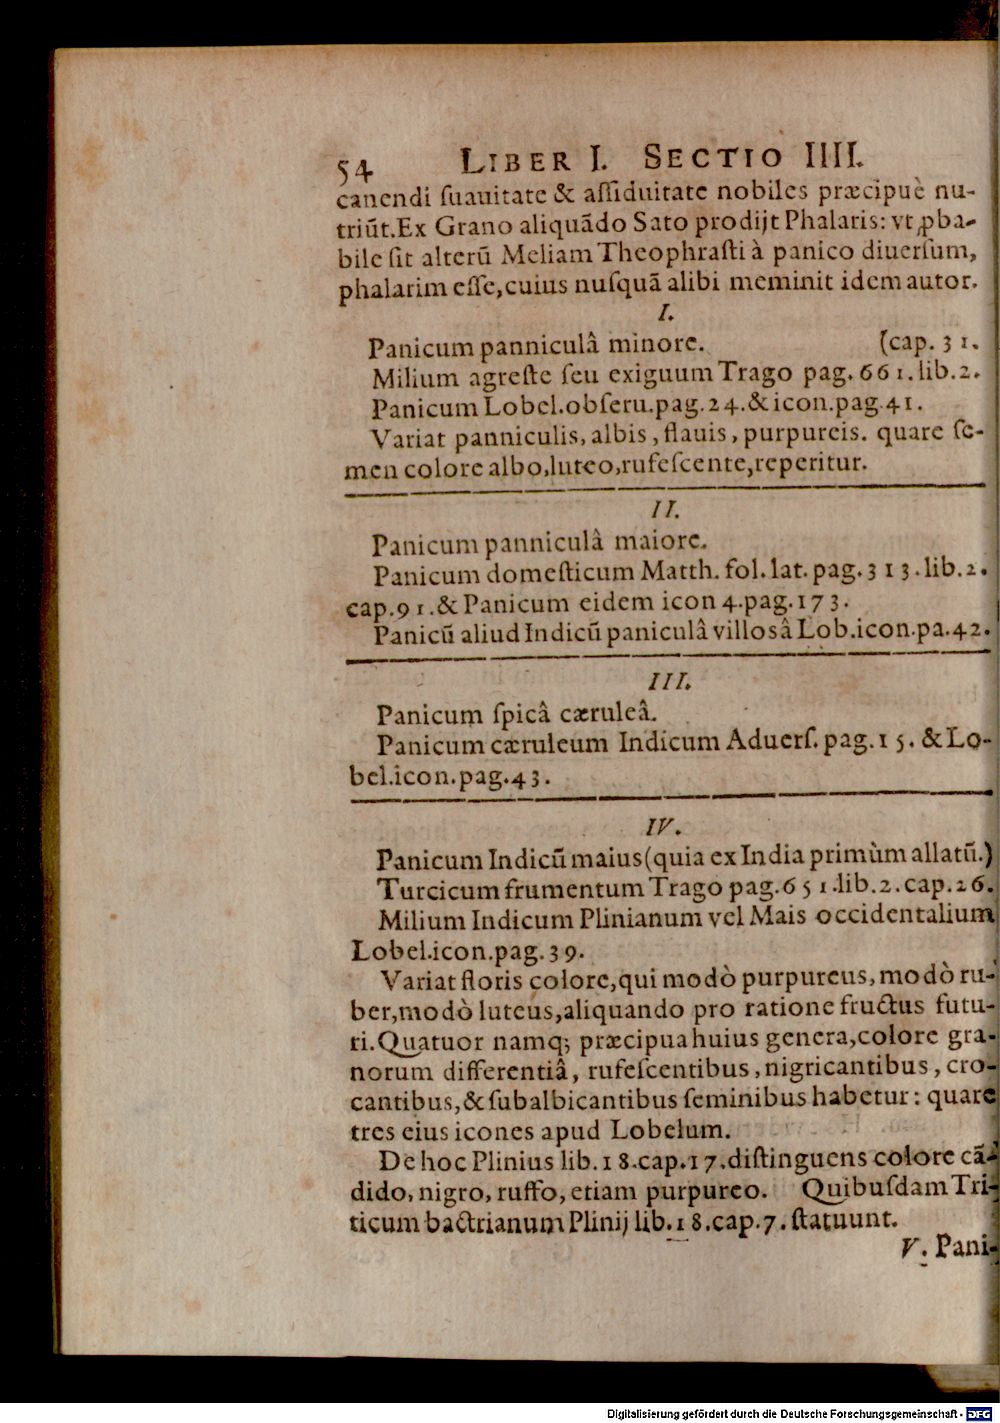 54 LIBER I. SECTIO IIII.
canendi ſuauitate & aſſiduitate nobiles præcipuè nu-
triũt. Ex Grano aliquãdo Sato prodijt Phalaris: vt ꝓba-
bile ſit alterũ Meliam Theophraſti à panico diuerſum,
phalarim eſſe, cuius nuſquã alibi meminit idem autor.
I.
Panicum panniculâ minore. (cap. 31.
Milium agreſte ſeu exiguum Trago pag. 661. lib. 2.
Panicum Lobel. obſeru. pag. 24. & icon. pag. 41.
Variat panniculis, albis, flauis, purpureis. quare ſe-
men colore albo, luteo, rufeſcente, reperitur.
II.
Panicum panniculâ maiore.
Panicum domeſticum Matth. fol. lat. pag. 313. lib. 2.
cap. 91. & Panicum eidem icon 4. pag. 173.
Panicũ aliud Indicũ paniculâ villosâ Lob. icon. pa. 42.
III.
Panicum ſpicâ cæruleâ.
Panicum cæruleum Indicum Aduerſ. pag. 15. & Lo-
bel. icon. pag. 43.
IV.
Panicum Indicũ maius (quia ex India primùm allatũ.)
Turcicum frumentum Trago pag. 651. lib. 2. cap. 26.
Milium Indicum Plinianum vel Mais occidentalium
Lobel. icon. pag. 39.
Variat floris colore, qui modò purpureus, modò ru-
ber, modò luteus, aliquando pro ratione fructus futu-
ri. Quatuor namq; præcipua huius genera, colore gra-
norum differentiâ, rufeſcentibus, nigricantibus, cro-
cantibus, & ſubalbicantibus ſeminibus habetur: quare
tres eius icones apud Lobelum.
De hoc Plinius lib. 18. cap. 17. diſtinguens colore cã-
dido, nigro, ruffo, etiam purpureo. Quibuſdam Tri-
ticum bactrianum Plinij lib. 18. cap. 7. ſtatuunt.
V. Pani-
Digitalisierung gefördert durch die Deutsche Forschungsgemeinschaft - DFG